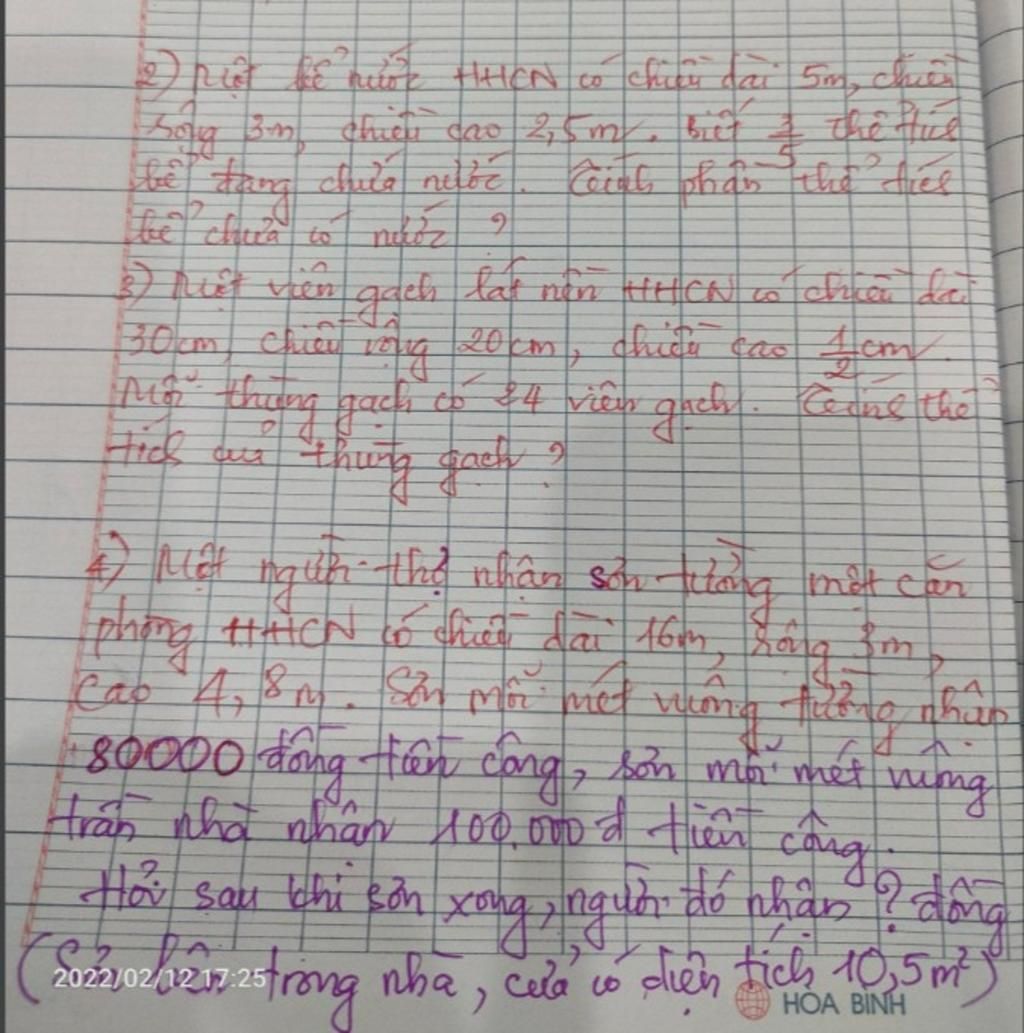 2) Một bể nước HHCN có chiều dài 5m, chiều
rộng 3m, chiều cao 2,5m. Biết 3/5 thể tích
bể đang chứa nước. Tính phần thể tích
bể chưa có nước ?
3) Một viên gạch lát nền HHCN có chiều dài
30cm, chiều rộng 20cm, chiều cao 1/2 cm.
Mỗi thùng gạch có 24 viên gạch. Tính thể
tích của thùng gạch ?
4) Một người thợ nhận sơn tường một căn
phòng HHCN có chiều dài 16m, rộng 3m,
cao 4,8m. Sơn mỗi mét vuông tường nhận
80000 đồng tiền công, sơn mỗi mét vuông
trần nhà nhận 100.000đ tiền công.
Hỏi sau khi sơn xong, người đó nhận ? đồng
(Sơn bên trong nhà, cửa có diện tích 10,5m²)
2022/02/12 17:25
HOA BINH